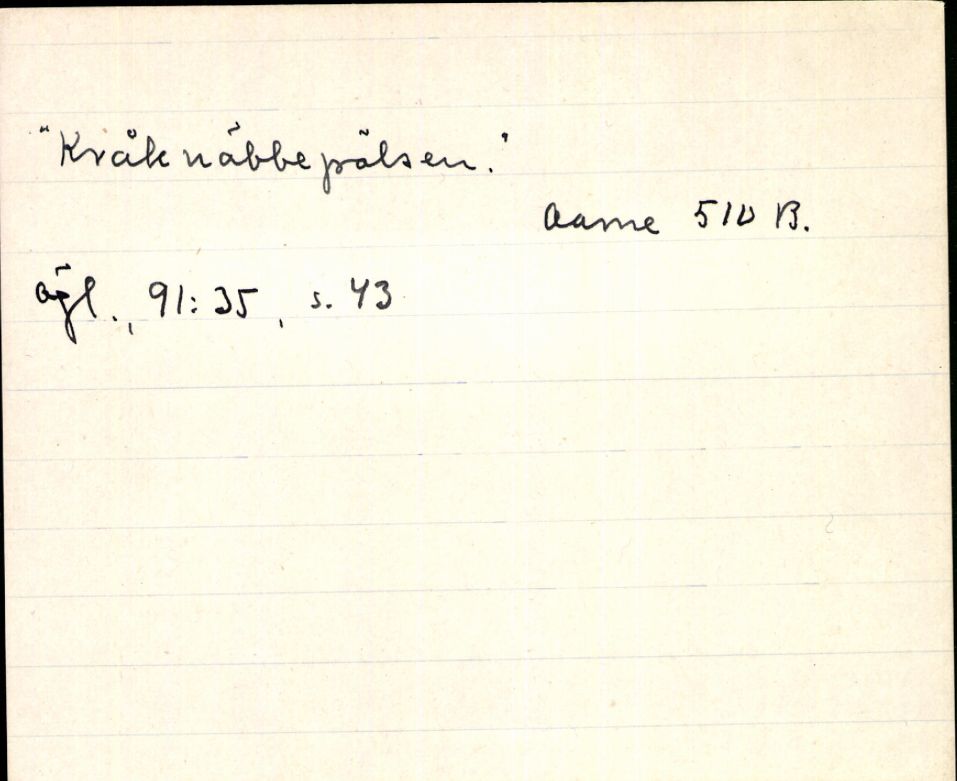 "Kråknäbbepälsen."
Aarne 510 B.
ögl., 91:35, s. 43